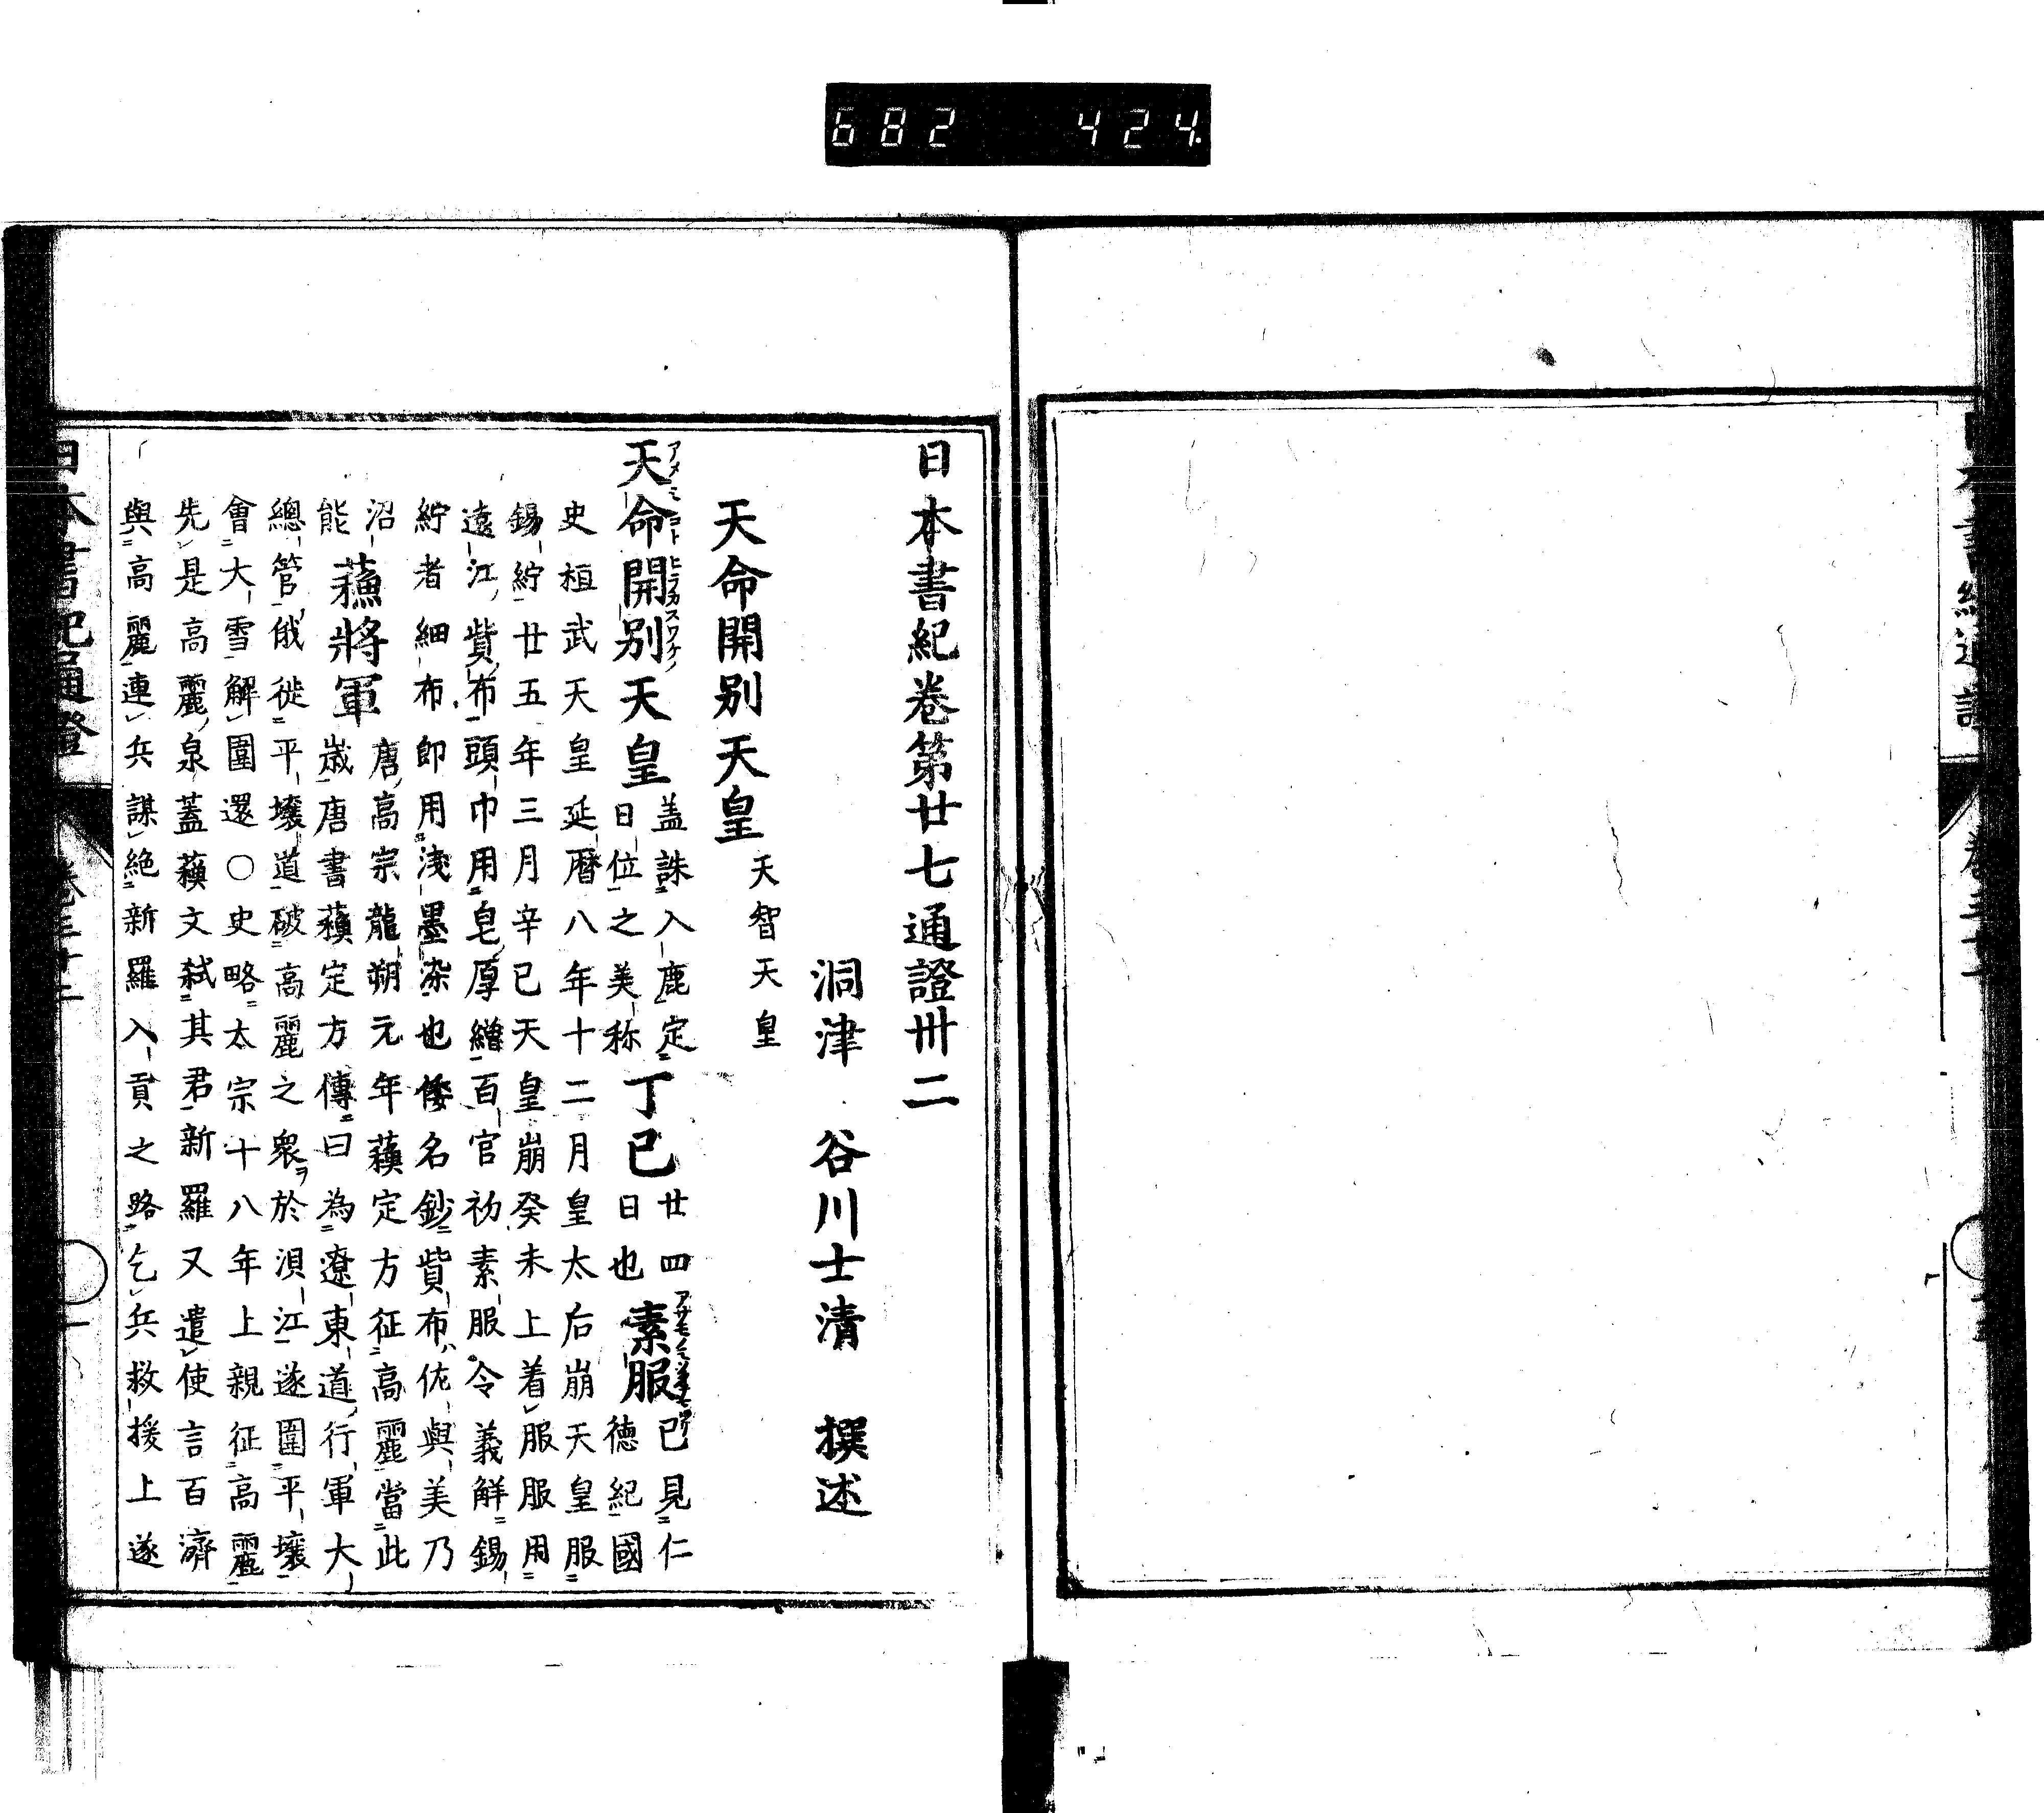 682 424
日本書紀卷第廿七通證卌二
洞津 谷川士清 撰述
天命開别天皇 天智天皇
天命開别天皇 盖誅入鹿定 日位之美称 丁巳 廿四 日也 素服 已見仁 徳紀國
史桓武天皇延暦八年十二月皇太后崩天皇服
錫紵廿五年三月辛巳天皇崩癸未上着服服用
遠江貲布頭巾用皂厚繒百官初素服令義解錫
紵者細布即用淺墨染也倭名鈔貲布佐與美乃
沼能 蘓將軍 唐高宗龍朔元年蘓定方征高麗當此
歳唐書蘓定方傳曰為遼東道行軍大
總管俄徙平壌道破高麗之衆於浿江遂圍平壌
會大雪解圍還○史略太宗十八年上親征高麗
先是高麗泉蓋蘓文弑其君新羅又遣使言百濟
與高麗連兵謀絶新羅入貢之路乞兵救援上遂
日本書紀通證 卷三十二 一